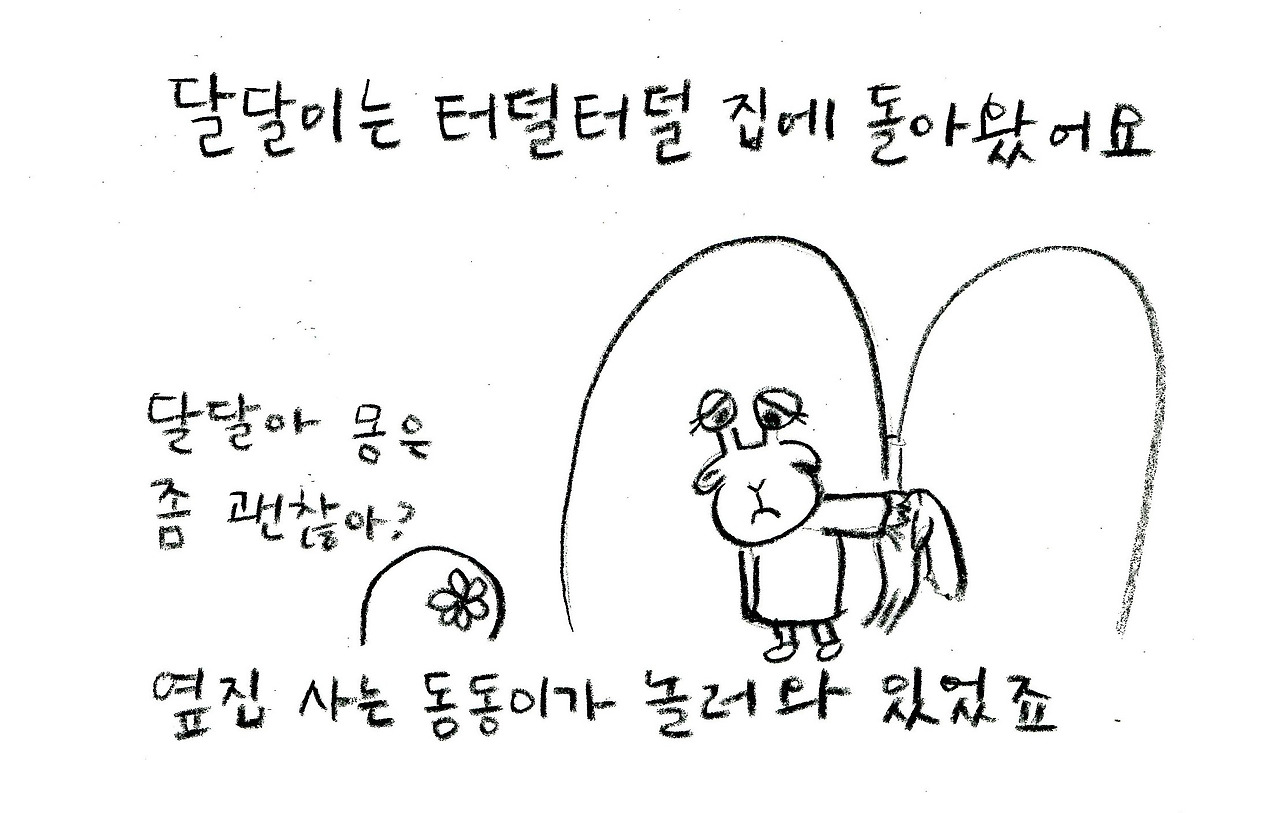 달달이는 터덜터덜 집에 돌아왔어요
달달아 몽은
좀 괜찮아?
옆집 사는 동동이가 놀러 와 있었죠